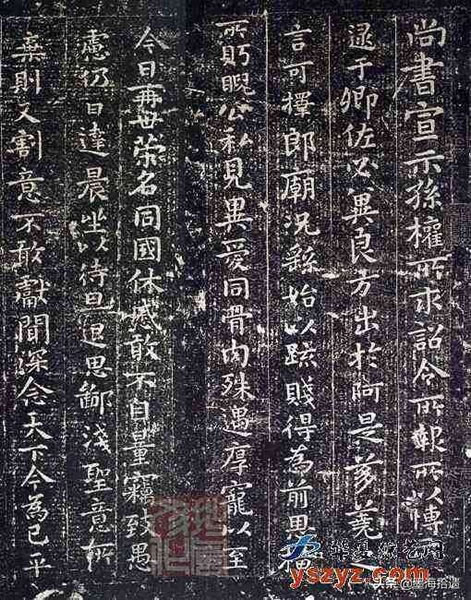 尚書宣示孫權所求詔令所報所以博
逮于卿佐必冀良方出於阿是芻蕘
言可擇郎廟況繇始以疏賤得為前恩橫
所眄睨公私見異愛同骨肉殊遇厚寵以至
今日再世榮名同國休慼敢不自量竊致愚
慮仍日達晨坐以待旦退思鄙淺聖意所
棄則又割意不敢獻聞深念天下今為已平
yszyz.com
头条 @墨海拾遗